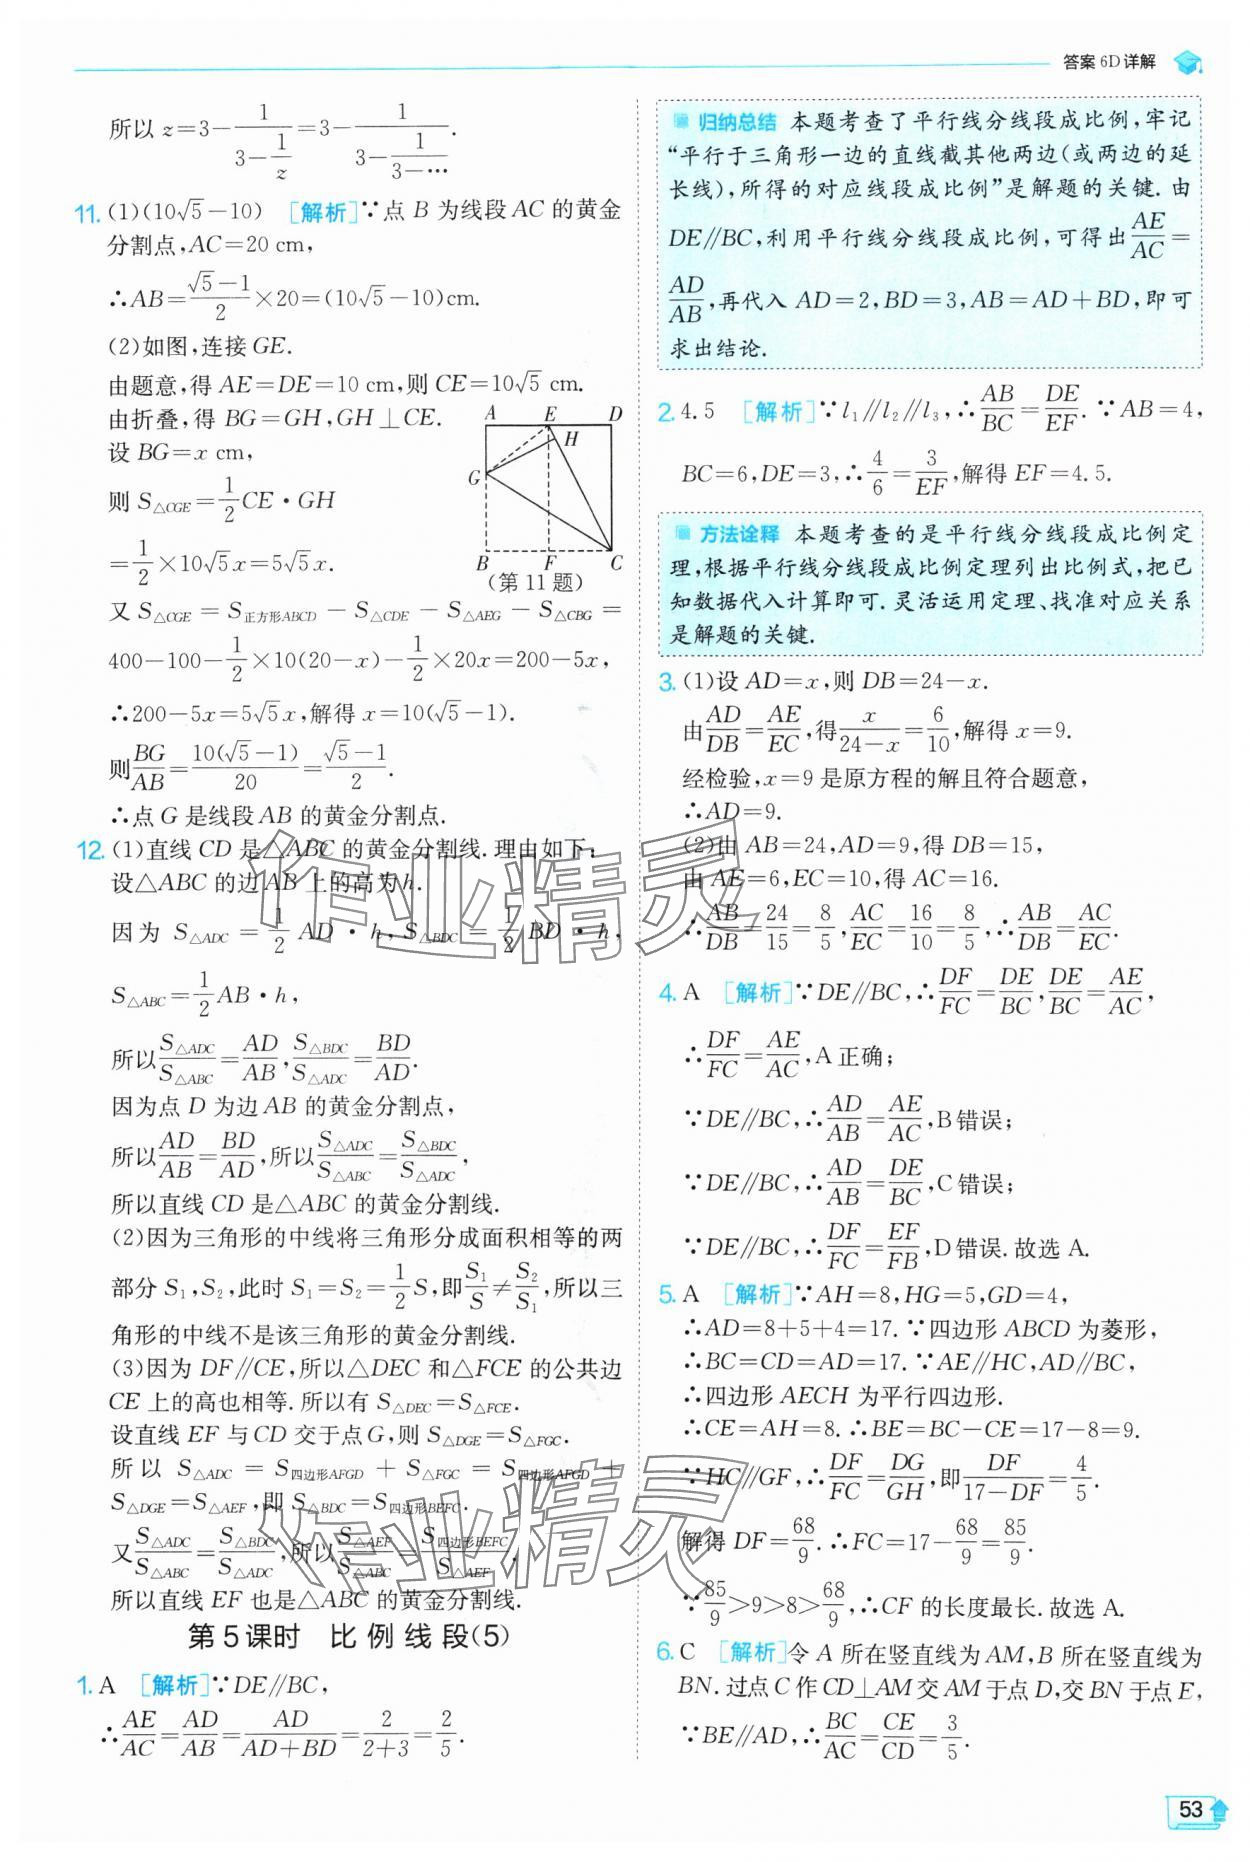 答案 6D 详解
所以 z=3-1/(3-1/z)=3-1/(3-1/(3-⋯)).
11. (1)(10√5-10) [解析]∵点 B 为线段 AC 的黄金
分割点,AC=20 cm,
∴AB=(√5-1)/2×20=(10√5-10)cm.
(2)如图,连接 GE.
由题意,得 AE=DE=10 cm,则 CE=10√5 cm.
由折叠,得 BG=GH,GH⊥CE.
设 BG=x cm,
则 S△CGE=1/2CE·GH
=1/2×10√5x=5√5x.
A E D
H
G
B F C
(第 11 题)
又 S△CGE = S正方形ABCD - S△CDE - S△AEG - S△CBG =
400-100-1/2×10(20-x)-1/2×20x=200-5x,
∴200-5x=5√5x,解得 x=10(√5-1).
则BG/AB=10(√5-1)/20=(√5-1)/2.
∴点 G 是线段 AB 的黄金分割点.
12. (1)直线 CD 是△ABC 的黄金分割线.理由如下:
设△ABC 的边 AB 上的高为 h.
因为 S△ADC = 1/2 AD·h, S△BDC = 1/2 BD·h,
S△ABC=1/2AB·h,
所以S△ADC/S△ABC=AD/AB,S△BDC/S△ADC=BD/AD.
因为点 D 为边 AB 的黄金分割点,
所以AD/AB=BD/AD,所以S△ADC/S△ABC=S△BDC/S△ADC,
所以直线 CD 是△ABC 的黄金分割线.
(2)因为三角形的中线将三角形分成面积相等的两
部分 S₁,S₂,此时 S₁=S₂=1/2S,即S₁/S≠S₂/S₁,所以三
角形的中线不是该三角形的黄金分割线.
(3)因为 DF∥CE,所以△DEC 和△FCE 的公共边
CE 上的高也相等.所以有 S△DEC=S△FCE.
设直线 EF 与 CD 交于点 G,则 S△DGE=S△FGC.
所以 S△ADC = S四边形AFGD + S△FGC = S四边形AFGD +
S△DGE=S△AEF,即 S△BDC=S四边形BEFC.
又S△ADC/S△ABC=S△BDC/S△ADC,所以S△AEF/S△ABC=S四边形BEFC/S△AEF,
所以直线 EF 也是△ABC 的黄金分割线.
第 5 课时 比例线段(5)
1. A [解析]∵DE∥BC,
∴AE/AC=AD/AB=AD/(AD+BD)=2/(2+3)=2/5.
归纳总结 本题考查了平行线分线段成比例,牢记
“平行于三角形一边的直线截其他两边(或两边的延
长线),所得的对应线段成比例”是解题的关键.由
DE∥BC,利用平行线分线段成比例,可得出AE/AC=
AD/AB,再代入 AD=2,BD=3,AB=AD+BD,即可
求出结论.
2. 4.5 [解析]∵l₁∥l₂∥l₃,∴AB/BC=DE/EF.∵AB=4,
BC=6,DE=3,∴4/6=3/EF,解得 EF=4.5.
方法诠释 本题考查的是平行线分线段成比例定
理,根据平行线分线段成比例定理列出比例式,把已
知数据代入计算即可.灵活运用定理、找准对应关系
是解题的关键.
3. (1)设 AD=x,则 DB=24-x.
由AD/DB=AE/EC,得x/(24-x)=6/10,解得 x=9.
经检验,x=9 是原方程的解且符合题意,
∴AD=9.
(2)由 AB=24,AD=9,得 DB=15,
由 AE=6,EC=10,得 AC=16.
∴AB/DB=24/15=8/5,AC/EC=16/10=8/5,∴AB/DB=AC/EC.
4. A [解析]∵DE∥BC,∴DF/FC=DE/BC,DE/BC=AE/AC,
∴DF/FC=AE/AC,A 正确;
∵DE∥BC,∴AD/AB=AE/AC,B 错误;
∵DE∥BC,∴AD/AB=DE/BC,C 错误;
∵DE∥BC,∴DF/FC=EF/FB,D 错误.故选 A.
5. A [解析]∵AH=8,HG=5,GD=4,
∴AD=8+5+4=17.∵四边形 ABCD 为菱形,
∴BC=CD=AD=17.∵AE∥HC,AD∥BC,
∴四边形 AECH 为平行四边形.
∴CE=AH=8.∴BE=BC-CE=17-8=9.
∵HC∥GF,∴DF/FC=DG/GH,即DF/(17-DF)=4/5.
解得 DF=68/9.∴FC=17-68/9=85/9.
∵85/9>9>8>68/9,∴CF 的长度最长.故选 A.
6. C [解析]令 A 所在竖直线为 AM,B 所在竖直线为
BN.过点 C 作 CD⊥AM 交 AM 于点 D,交 BN 于点 E,
∵BE∥AD,∴BC/AC=CE/CD=3/5.
53
作业精灵
作业精灵